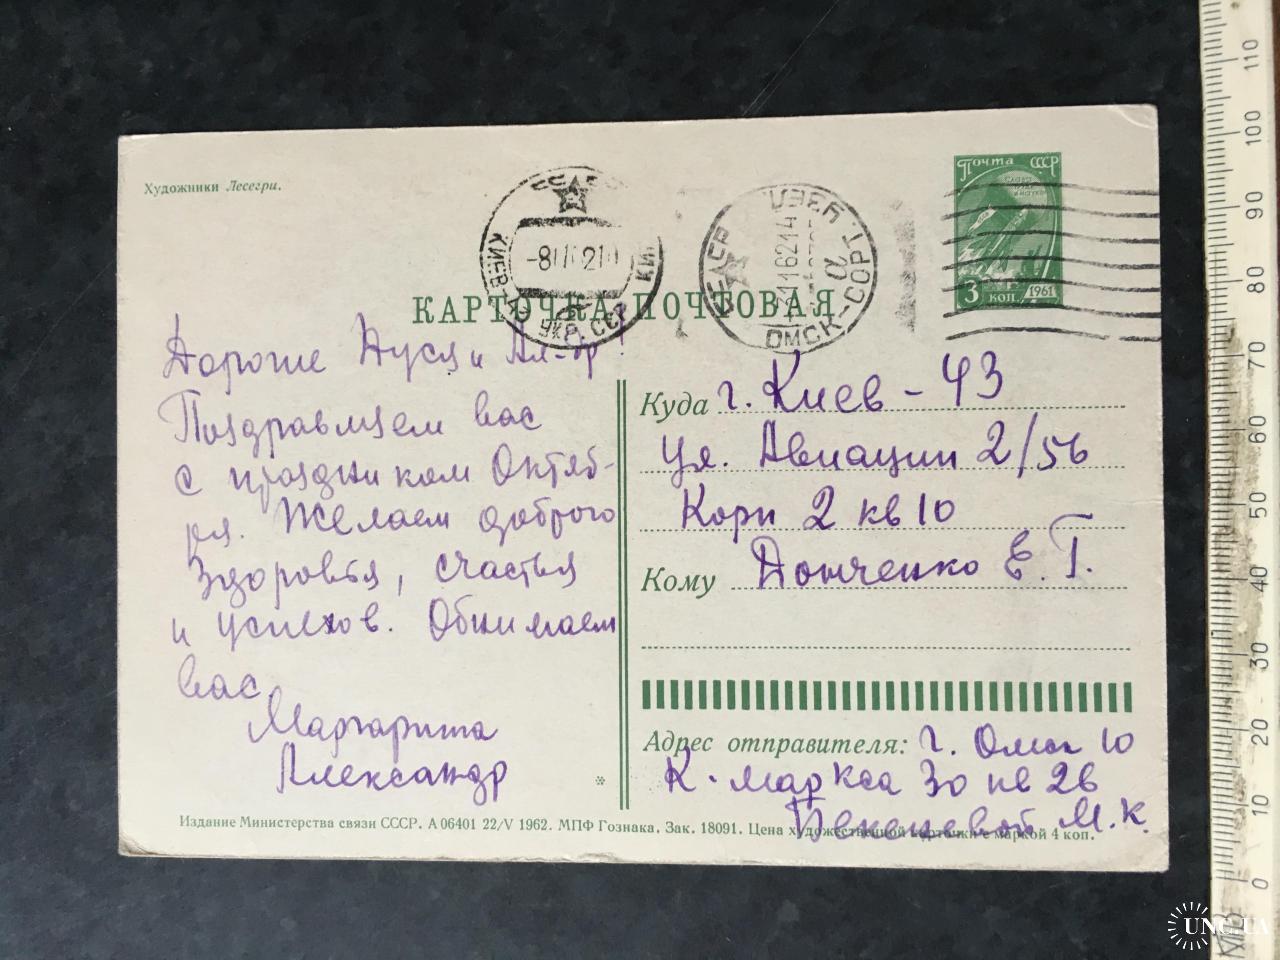 Художники Лесегри.
Почта СССР
3 коп. 1961
КАРТОЧКА ПОЧТОВАЯ
ОМСК-СОРТ. УЗЕЛ
Дорогие Дуся и Ал-др!
Поздравляем вас
с праздником Октяб-
ря. Желаем доброго
здоровья, счастья
и успехов. Обнимаем
вас
Маргарита
Александр
*
Куда г. Киев - 43
ул. Авиации 2/56
Корп 2 кв 10
Кому Донченко Е. Г.
Адрес отправителя: г. Омск 10
К. Маркса 30 кв 26
М. К.
Издание Министерства связи СССР. А 06401 22/V 1962. МПФ Гознака. Зак. 18091. Цена художественной карточки с маркой 4 коп.
0 10 20 30 40 50 60 70 80 90 100 110
UNC.UA